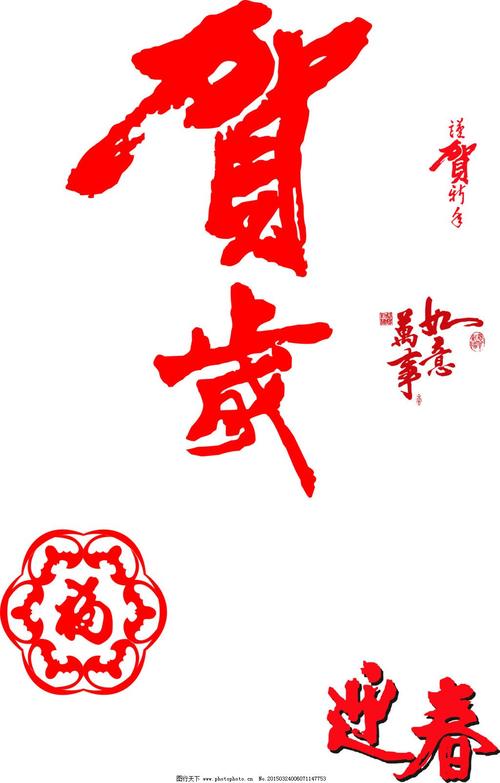 賀歲
謹賀新年
如意
萬事
福
迎春
图行天下 www.photophoto.cn No.20150324006071147753